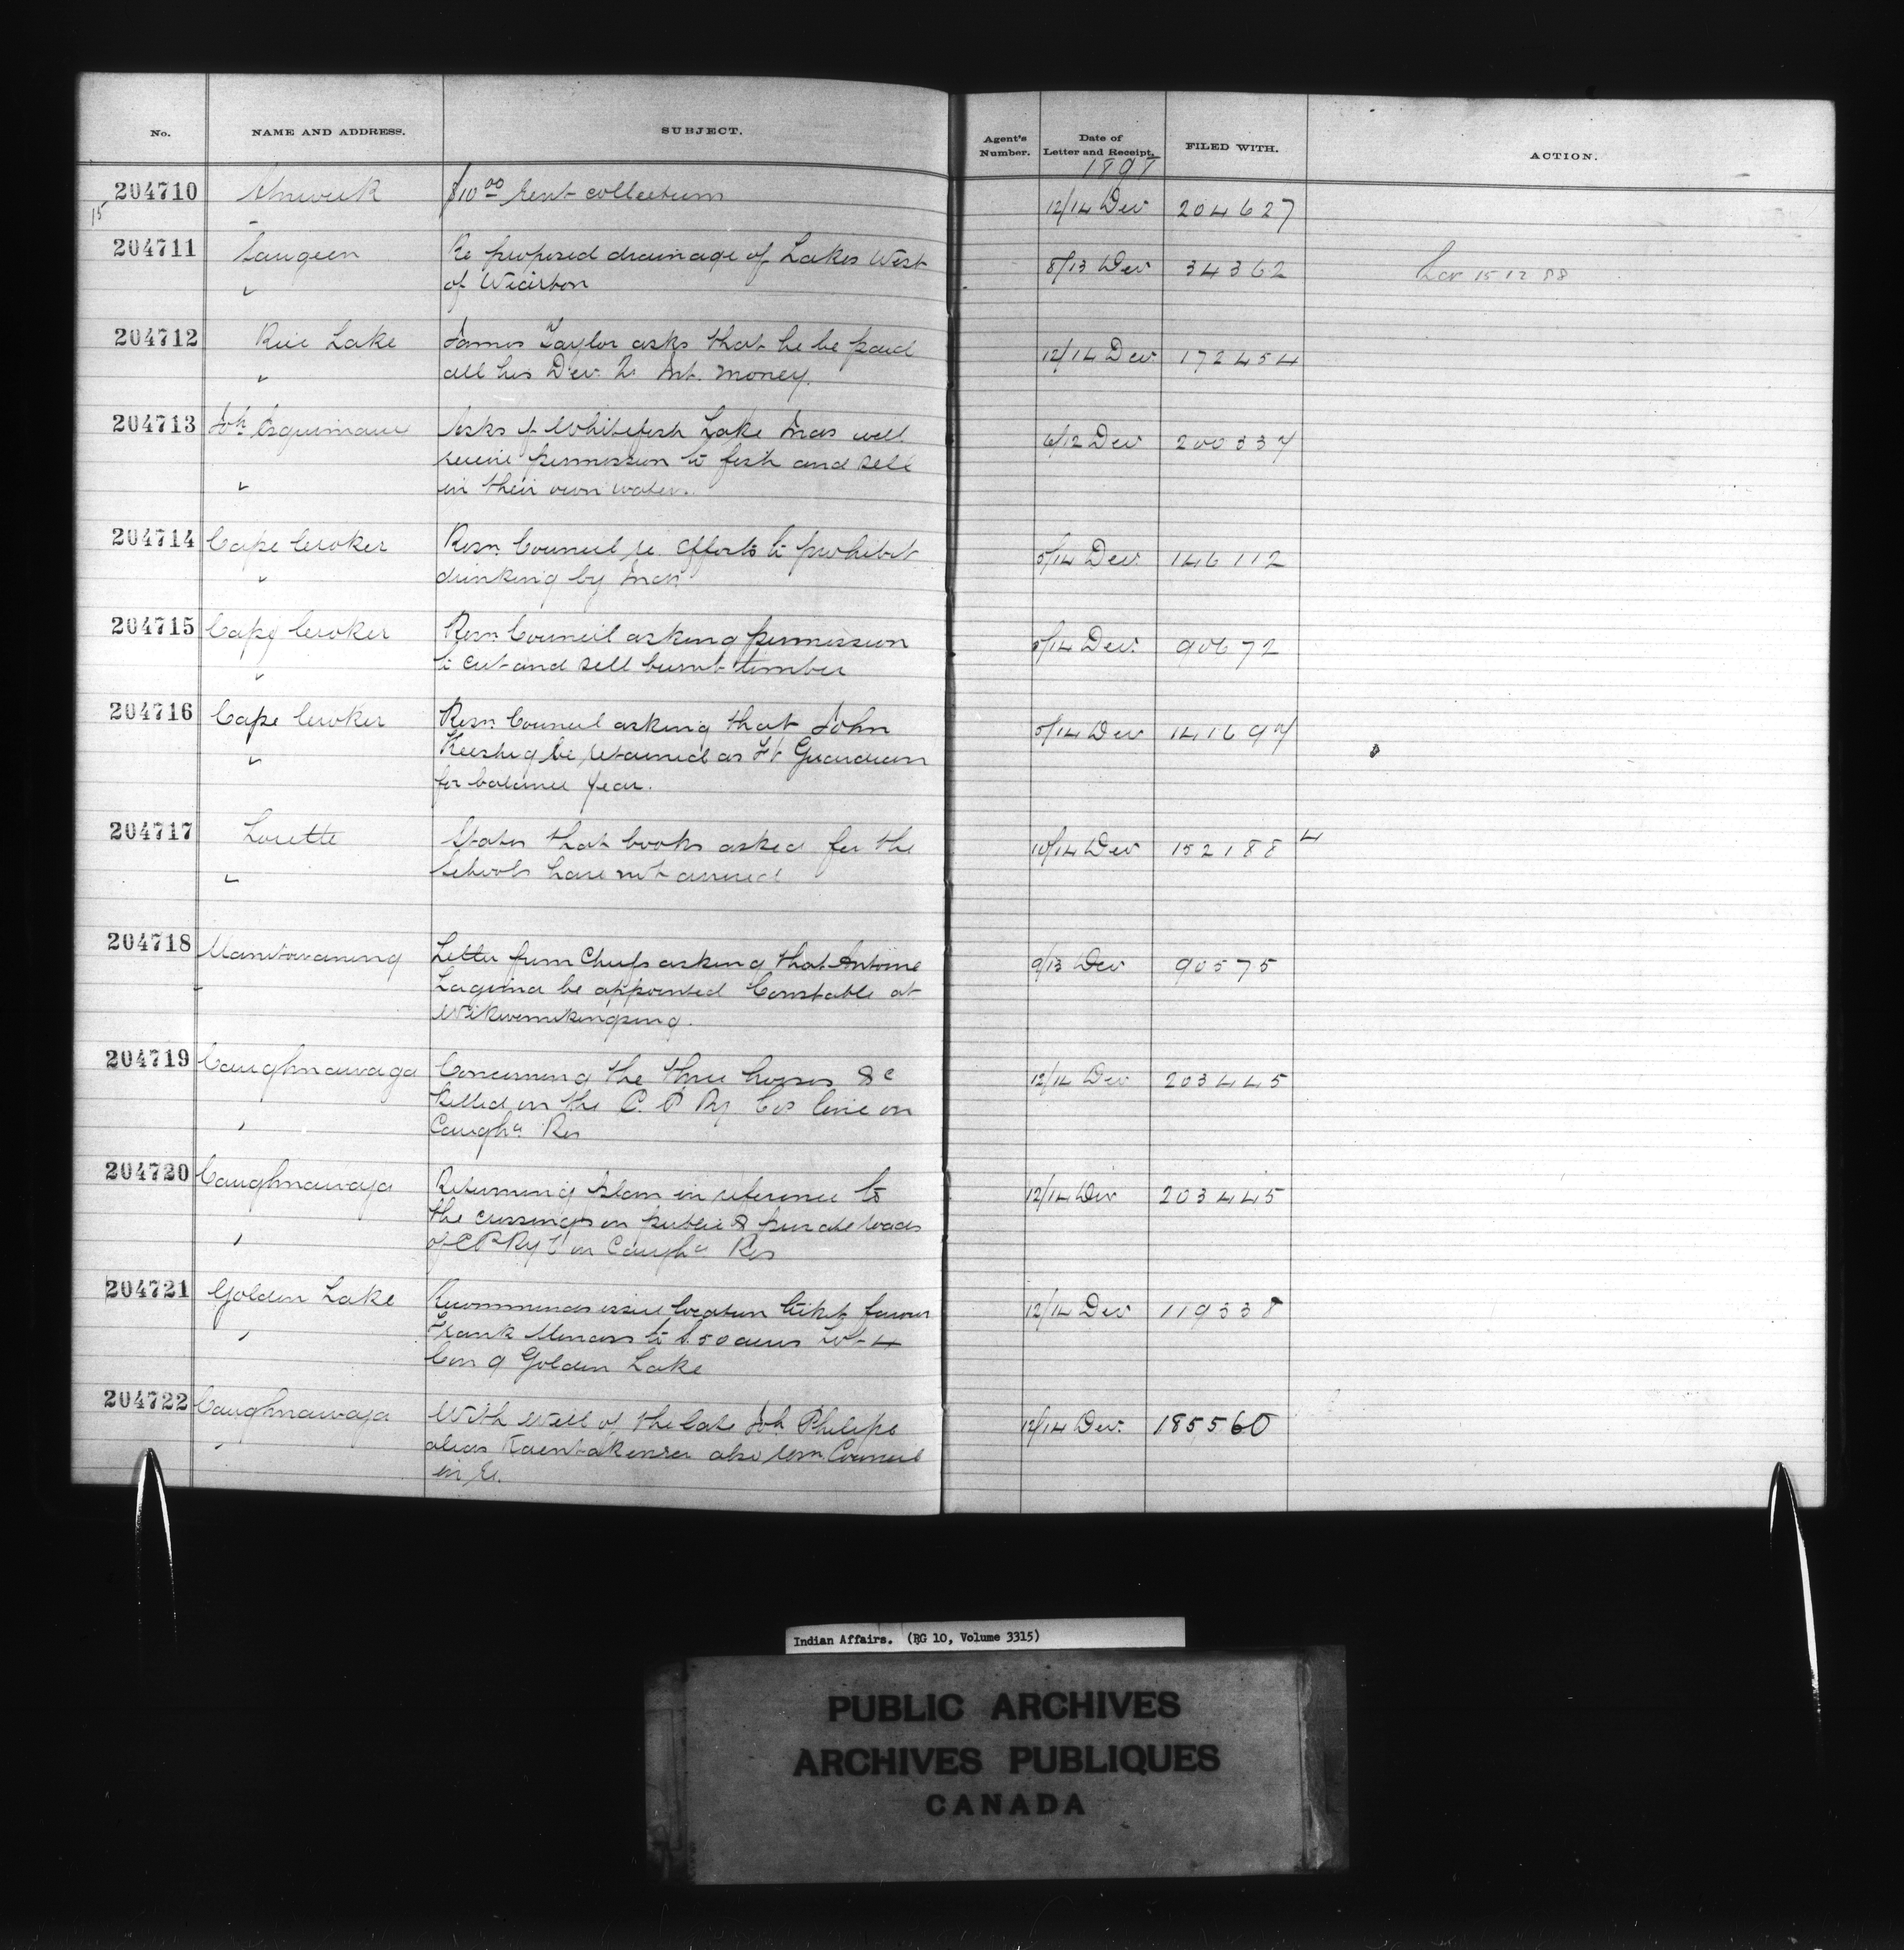 No. NAME AND ADDRESS. SUBJECT. Agent's Number. Date of Letter and Receipt. FILED WITH. ACTION.
1897
204710 Alnwick $10.00 rent collection 12/14 Dec 204627
15
204711 Saugeen Re proposed drainage of Lakes West 8/13 Dec 34362
of Wiarton
204712 Rice Lake James Taylor asks that he be paid 12/14 Dec 172454
all his Dev. Int. money.
204713 Jos. Esquimaux Asks if Whitefish Lake Inds will 6/12 Dec 200337
receive permission to fish and sell
in their own waters.
204714 Cape Croker Resn. Council re. efforts to prohibit 5/14 Dec 146112
drinking by Inds
204715 Cape Croker Resn. Council asking permission 5/14 Dec. 90672
to cut and sell burnt timber
204716 Cape Croker Resn. Council asking that John 5/14 Dec 141697
Keeshig be retained as Ft Guardian
for balance year.
204717 Lorette States that books asked for the 10/14 Dec 152188 4
schools have not arrived
204718 Manitowaning Letter from Chiefs asking that Antoine 9/13 Dec 90575
be appointed Constable at
Wikwemikongsing.
204719 Caughnawaga Concerning the three horses &c 12/14 Dec 203445
killed on the C. P Ry. Cos line on
Caugha Res
204720 Caughnawaga Returning plan in reference to 12/14 Dec 203445
the crossings on public & private roads
of C P Ry on Caugha Res
204721 Golden Lake Recommends issue location ticket favour 12/14 Dec 119338
Frank to 50 acres Lot 4
Con 9 Golden Lake
204722 Caughnawaga With Will of the late Jos. Philips 12/14 Dec. 185560
alias also resn. Council
in re.
Indian Affairs. (RG 10, Volume 3315)
PUBLIC ARCHIVES
ARCHIVES PUBLIQUES
CANADA